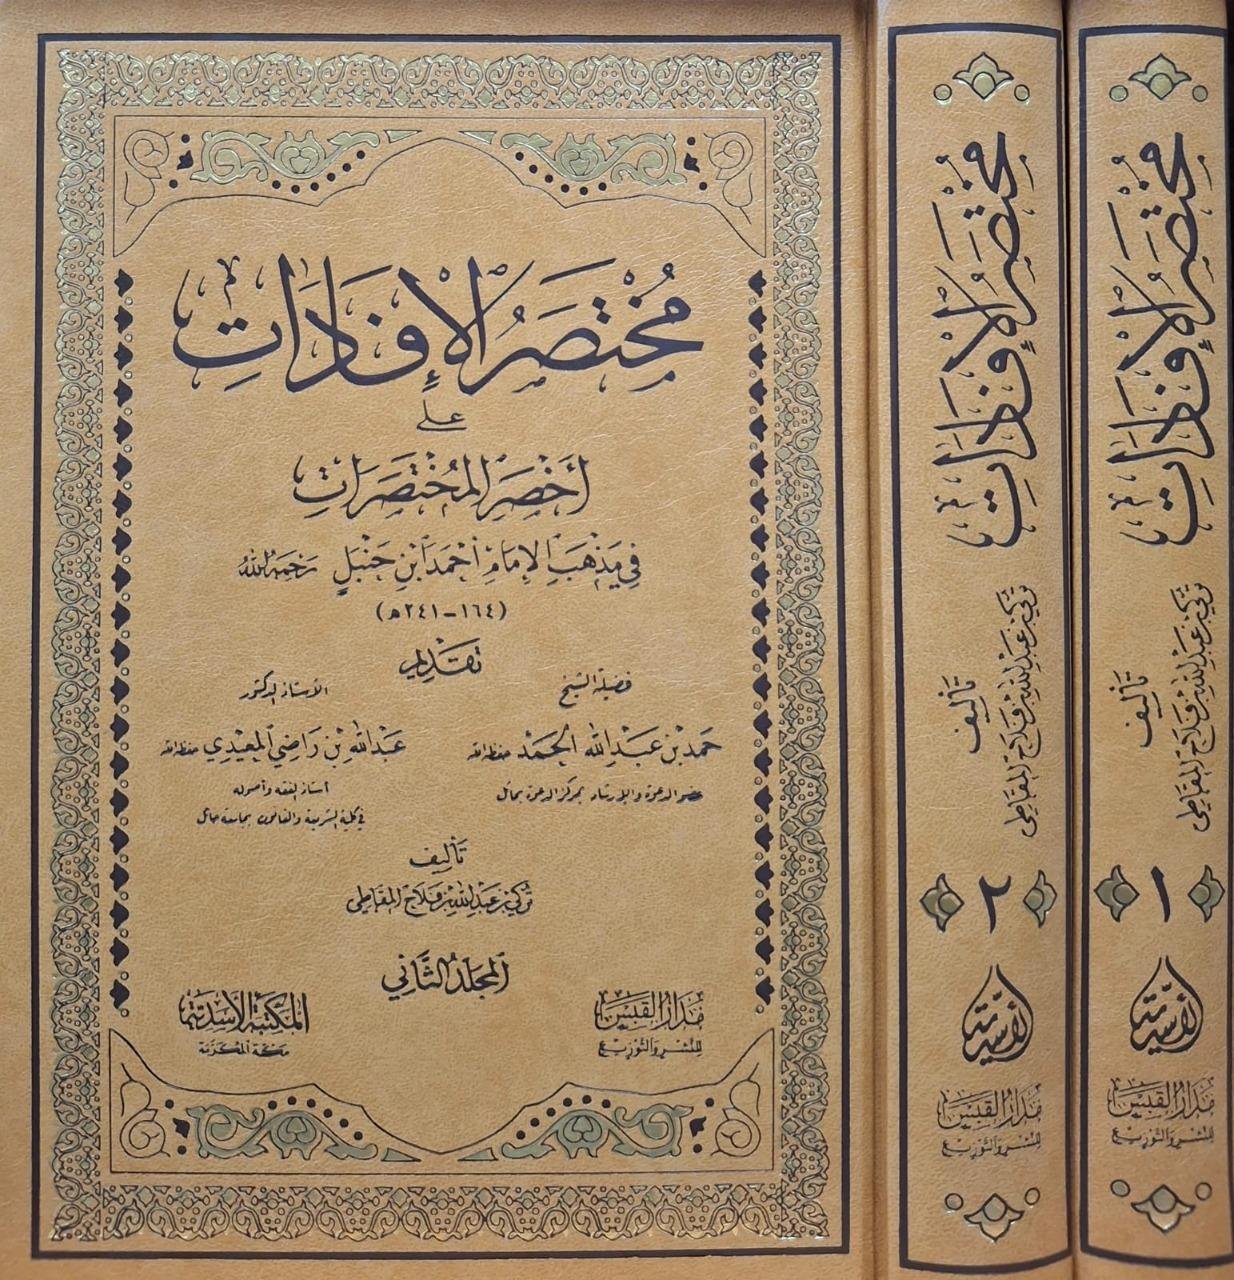 مُخْتَصَرُ الْإِفَادَاتِ
على
أَخْصَرِ الْمُخْتَصَرَاتِ
فِي مَذْهَبِ الْإِمَامِ أَحْمَدَ ابْنِ حَنْبَلٍ رَحِمَهُ اللهُ
(١٦٤ - ٢٤١ هـ)
تَقْدِيم
فضيلة الشيخ
حَمَد بْن عَبْدِ اللهِ الحَمَد حفظه الله
عضو الدعوة والإرشاد بمركز الدعوة بحائل
الأستاذ الدكتور
عَبْدُ اللهِ بْن رَاضِي المُعِيدِي حفظه الله
أستاذ الفقه وأصوله
في كلية الشريعة والقانون بجامعة حائل
تَأْلِيف
تُرْكِي بْن عَبْدِ اللهِ بْن فَلَاح المقَاطِي
الْمُجَلَّدُ الثَّانِي
مَدَارُ القَبَسِ
لِلنَّشْرِ وَالتَّوْزِيعِ
المَكْتَبَةُ الأَسَدِيَّة
مَكَّة المُكَرَّمَة
مُخْتَصَرُ الْإِفَادَاتِ
تَأْلِيف
تُرْكِي بْن عَبْدِ اللهِ بْن فَلَاح المقَاطِي
٢
الأسدية
مَدَارُ القَبَسِ
لِلنَّشْرِ وَالتَّوْزِيعِ
مُخْتَصَرُ الْإِفَادَاتِ
تَأْلِيف
تُرْكِي بْن عَبْدِ اللهِ بْن فَلَاح المقَاطِي
١
الأسدية
مَدَارُ القَبَسِ
لِلنَّشْرِ وَالتَّوْزِيعِ